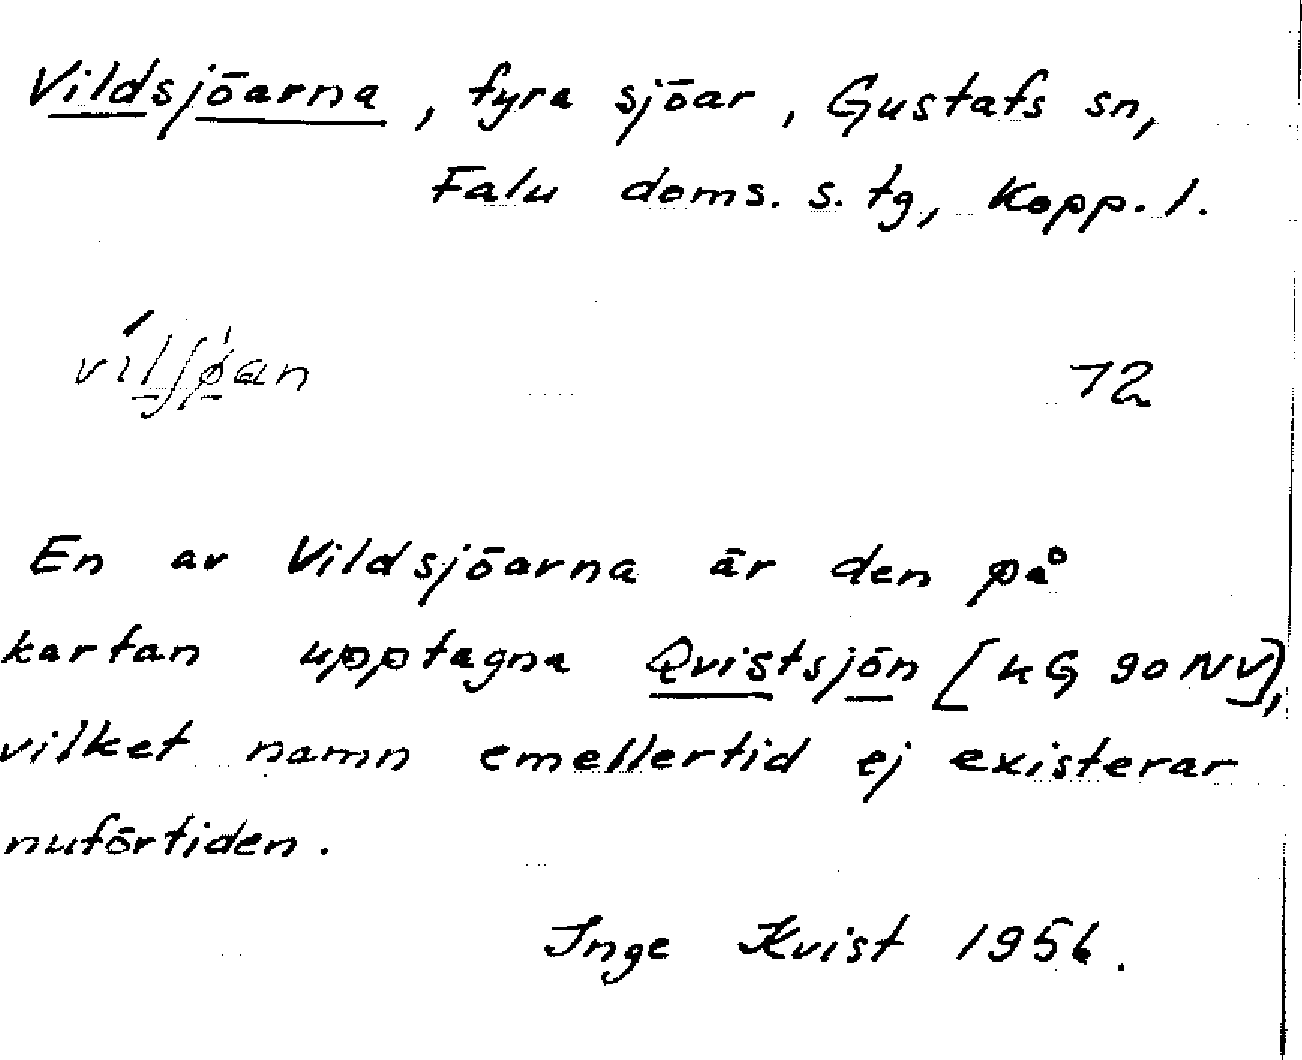 Vildsjöarna, fyra sjöar, Gustafs sn,
Falu doms. s. tg, Kopp. l.
12
En av Vildsjöarna är den på
kartan upptagna Qvistsjön [kG 90 NV],
vilket namn emellertid ej existerar
nuförtiden.
Inge Kvist 1956.